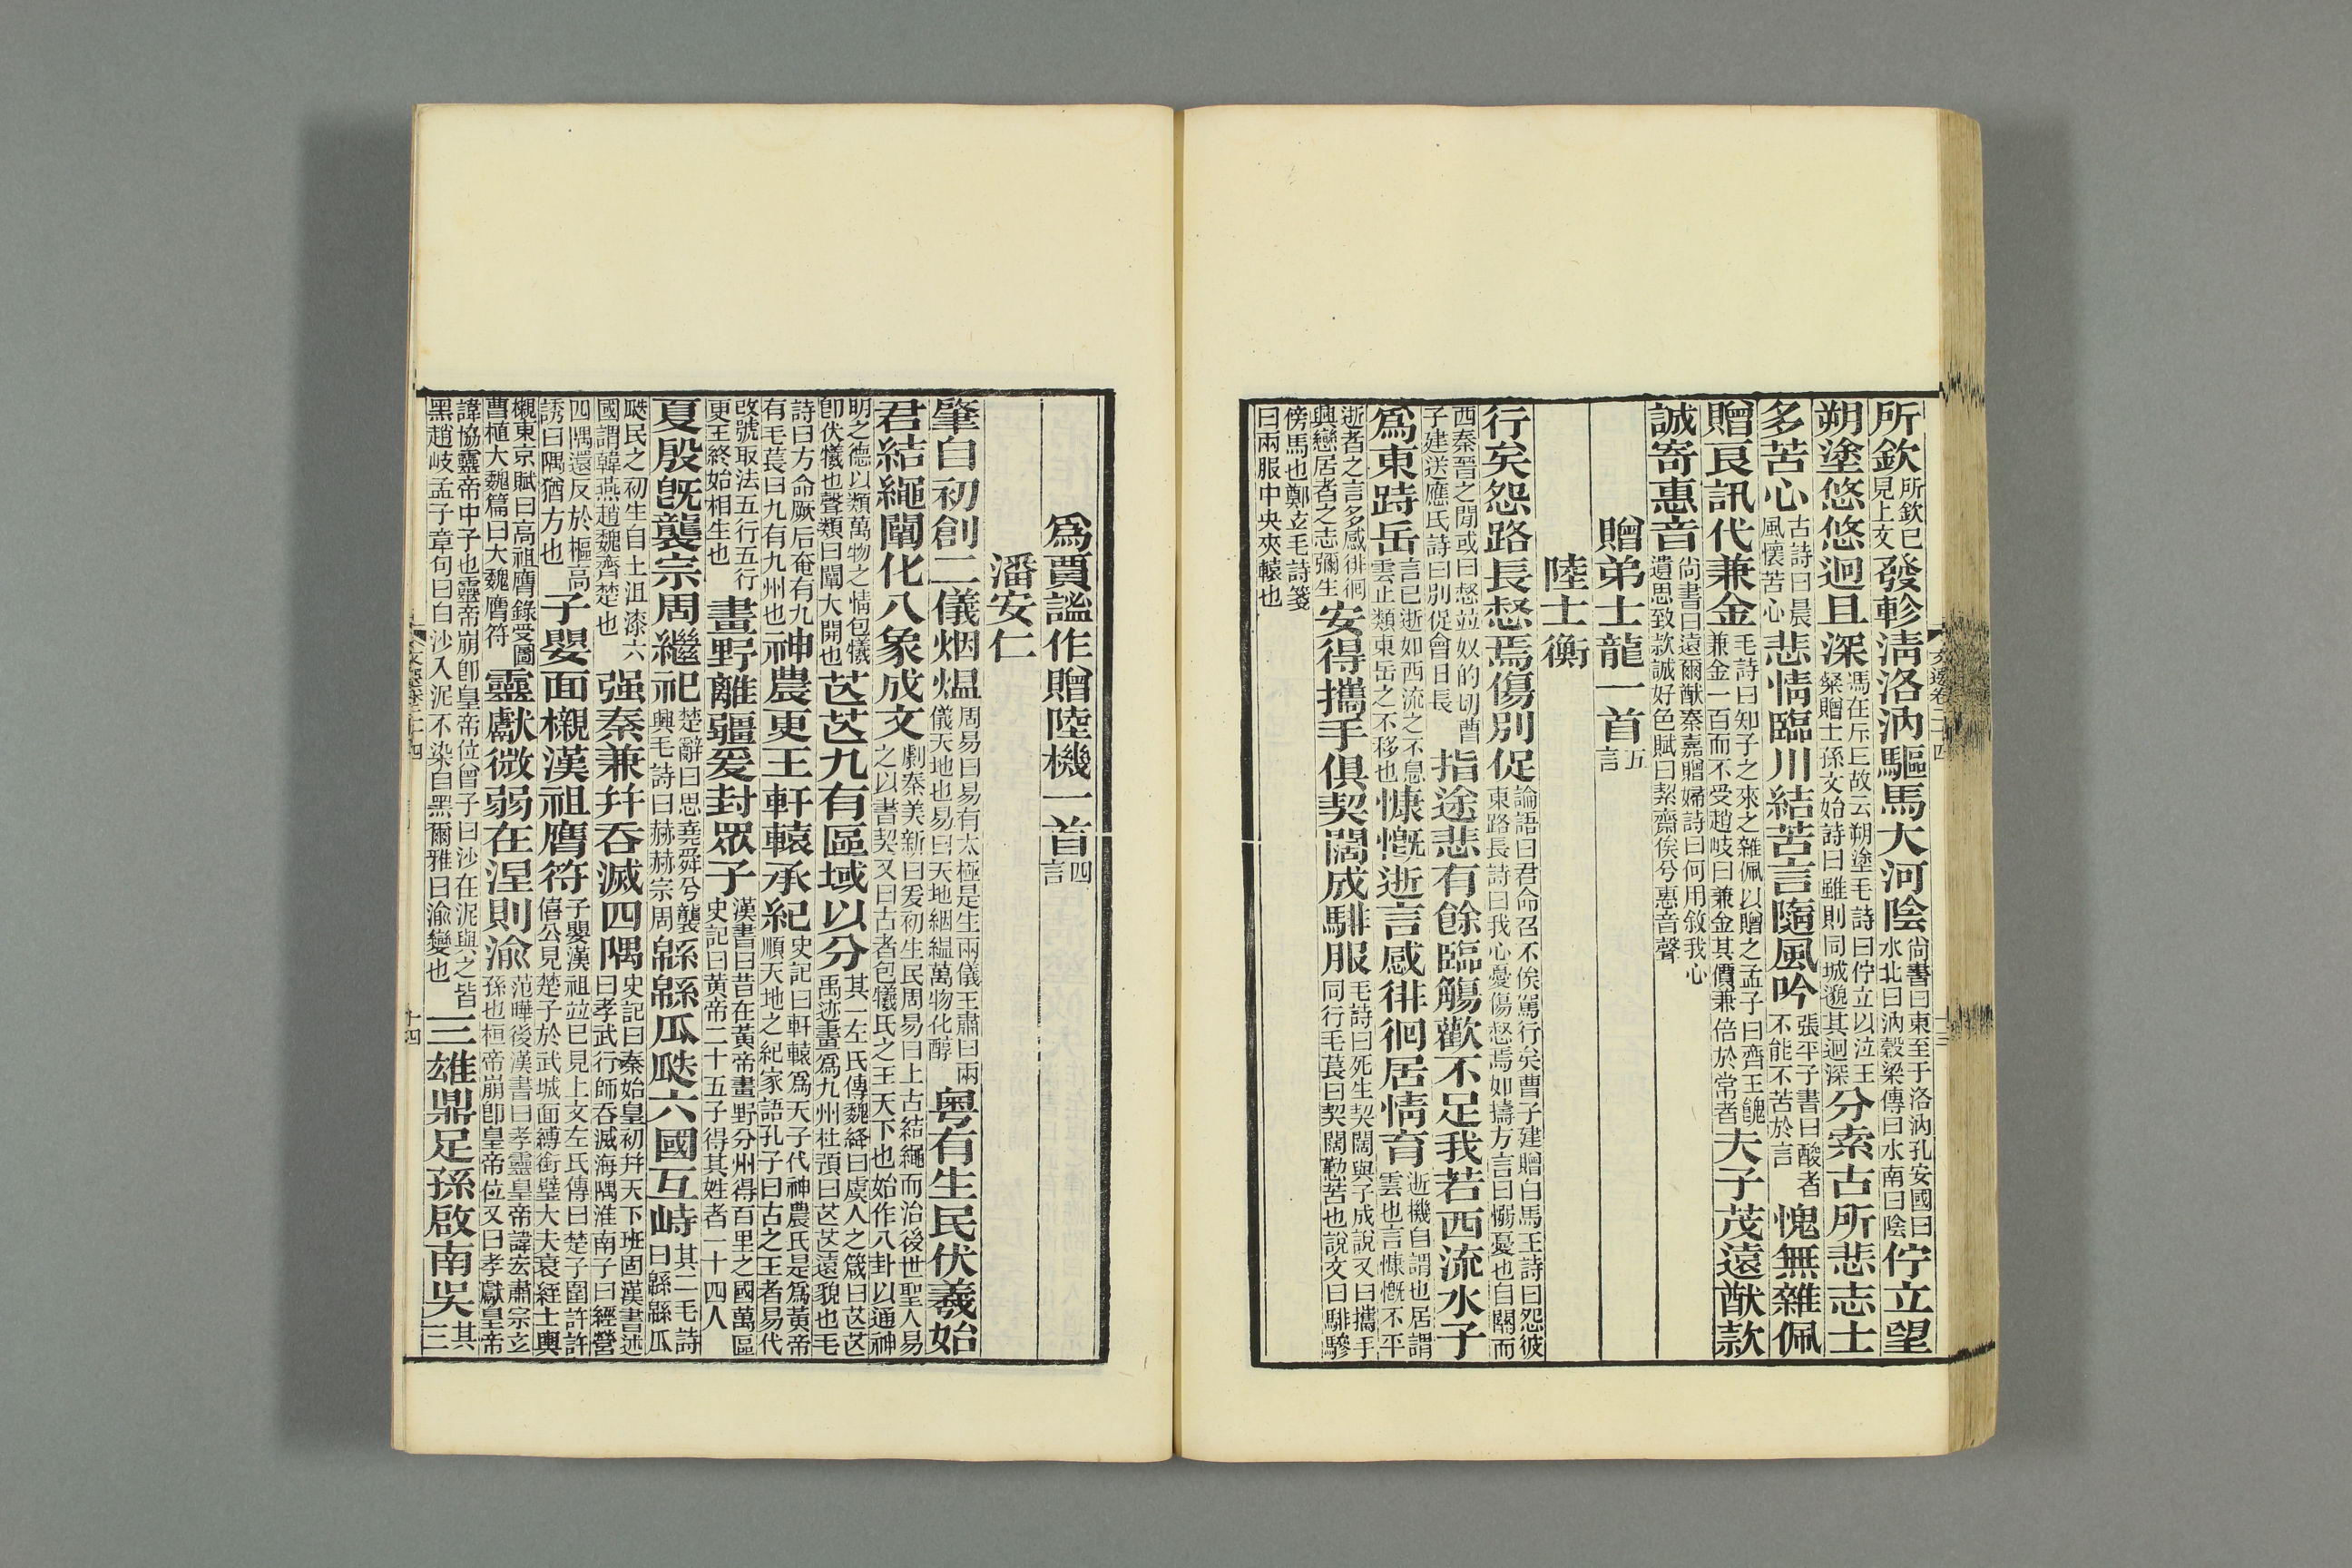 所欽所欽已見上文發軫淸洛汭驅馬大河陰尙書曰東至于洛汭孔安國曰水北曰汭穀梁傳曰水南曰陰佇立望
朔塗悠悠迥且深馮在斥丘故云朔塗毛詩曰佇立以泣王粲贈士孫文始詩曰雖則同城邈其迥深分索古所悲志士
多苦心古詩曰晨風懷苦心悲情臨川結苦言隨風吟張平子書曰酸者不能不苦於言愧無雜佩
贈良訊代兼金毛詩曰知子之來之雜佩以贈之孟子曰齊王餽兼金一百而不受趙岐曰兼金其價兼倍於常者夫子茂遠猷款
誠寄惠音尙書曰遠爾猷秦嘉贈婦詩曰何用敘我心遺思致款誠好色賦曰絜齋俟兮惠音聲
贈弟士龍一首五言
陸士衡
行矣怨路長惄焉傷別促論語曰君命召不俟駕行矣曹子建贈白馬王詩曰怨彼東路長詩曰我心憂傷惄焉如擣方言曰惄憂也自關而
西秦晉之閒或曰惄竝奴的切曹子建送應氏詩曰別促會日長指途悲有餘臨觴歡不足我若西流水子
爲東跱岳言已逝如西流之不息雲止類東岳之不移也慷慨逝言感徘徊居情育逝機自謂也居謂雲也言慷慨不平
逝者之言多感徘徊興戀居者之志彌生安得攜手俱契闊成騑服毛詩曰死生契闊與子成說又曰攜手同行毛萇曰契闊勤苦也說文曰騑驂
傍馬也鄭玄毛詩箋曰兩服中央夾轅也
爲賈謐作贈陸機一首四言
潘安仁
肇自初創二儀烟熅周易曰易有太極是生兩儀王肅曰兩儀天地也易曰天地絪縕萬物化醇粤有生民伏羲始
君結繩闡化八象成文劇秦美新曰爰初生民周易曰上古結繩而治後世聖人易之以書契又曰古者包犧氏之王天下也始作八卦以通神
明之德以類萬物之情包犧卽伏犧也聲類曰闡大開也芒芒九有區域以分其一左氏傳魏絳曰虞人之箴曰芒芒禹迹畫爲九州杜預曰芒芒遠貌也毛
詩曰方命厥后奄有九有毛萇曰九有九州也神農更王軒轅承紀史記曰軒轅爲天子代神農氏是爲黃帝順天地之紀家語孔子曰古之王者易代
改號取法五行五行更王終始相生也畫野離疆爰封眾子漢書曰昔在黃帝畫野分州得百里之國萬區史記曰黃帝二十五子得其姓者一十四人
夏殷旣襲宗周繼祀楚辭曰思堯舜兮襲興毛詩曰赫赫宗周緜緜瓜瓞六國互峙其二毛詩曰緜緜瓜
瓞民之初生自土沮漆六國謂韓燕趙魏齊楚也强秦兼幷吞滅四隅史記曰秦始皇初幷天下班固漢書述曰孝武行師吞滅海隅淮南子曰經營
四隅還反於樞高誘曰隅猶方也子嬰面櫬漢祖膺符子嬰漢祖竝已見上文左氏傳曰楚子圍許許僖公見楚子於武城面縛銜璧大夫衰絰士輿
櫬東京賦曰高祖膺錄受圖曹植大魏篇曰大魏膺符靈獻微弱在涅則渝范曄後漢書曰孝靈皇帝諱宏肅宗玄孫也桓帝崩卽皇帝位又曰孝獻皇帝
諱協靈帝中子也靈帝崩卽皇帝位曾子曰沙在泥與之皆黑趙岐孟子章句曰白沙入泥不染自黑爾雅曰渝變也三雄鼎足孫啟南吳其三
文選卷二十四
十四